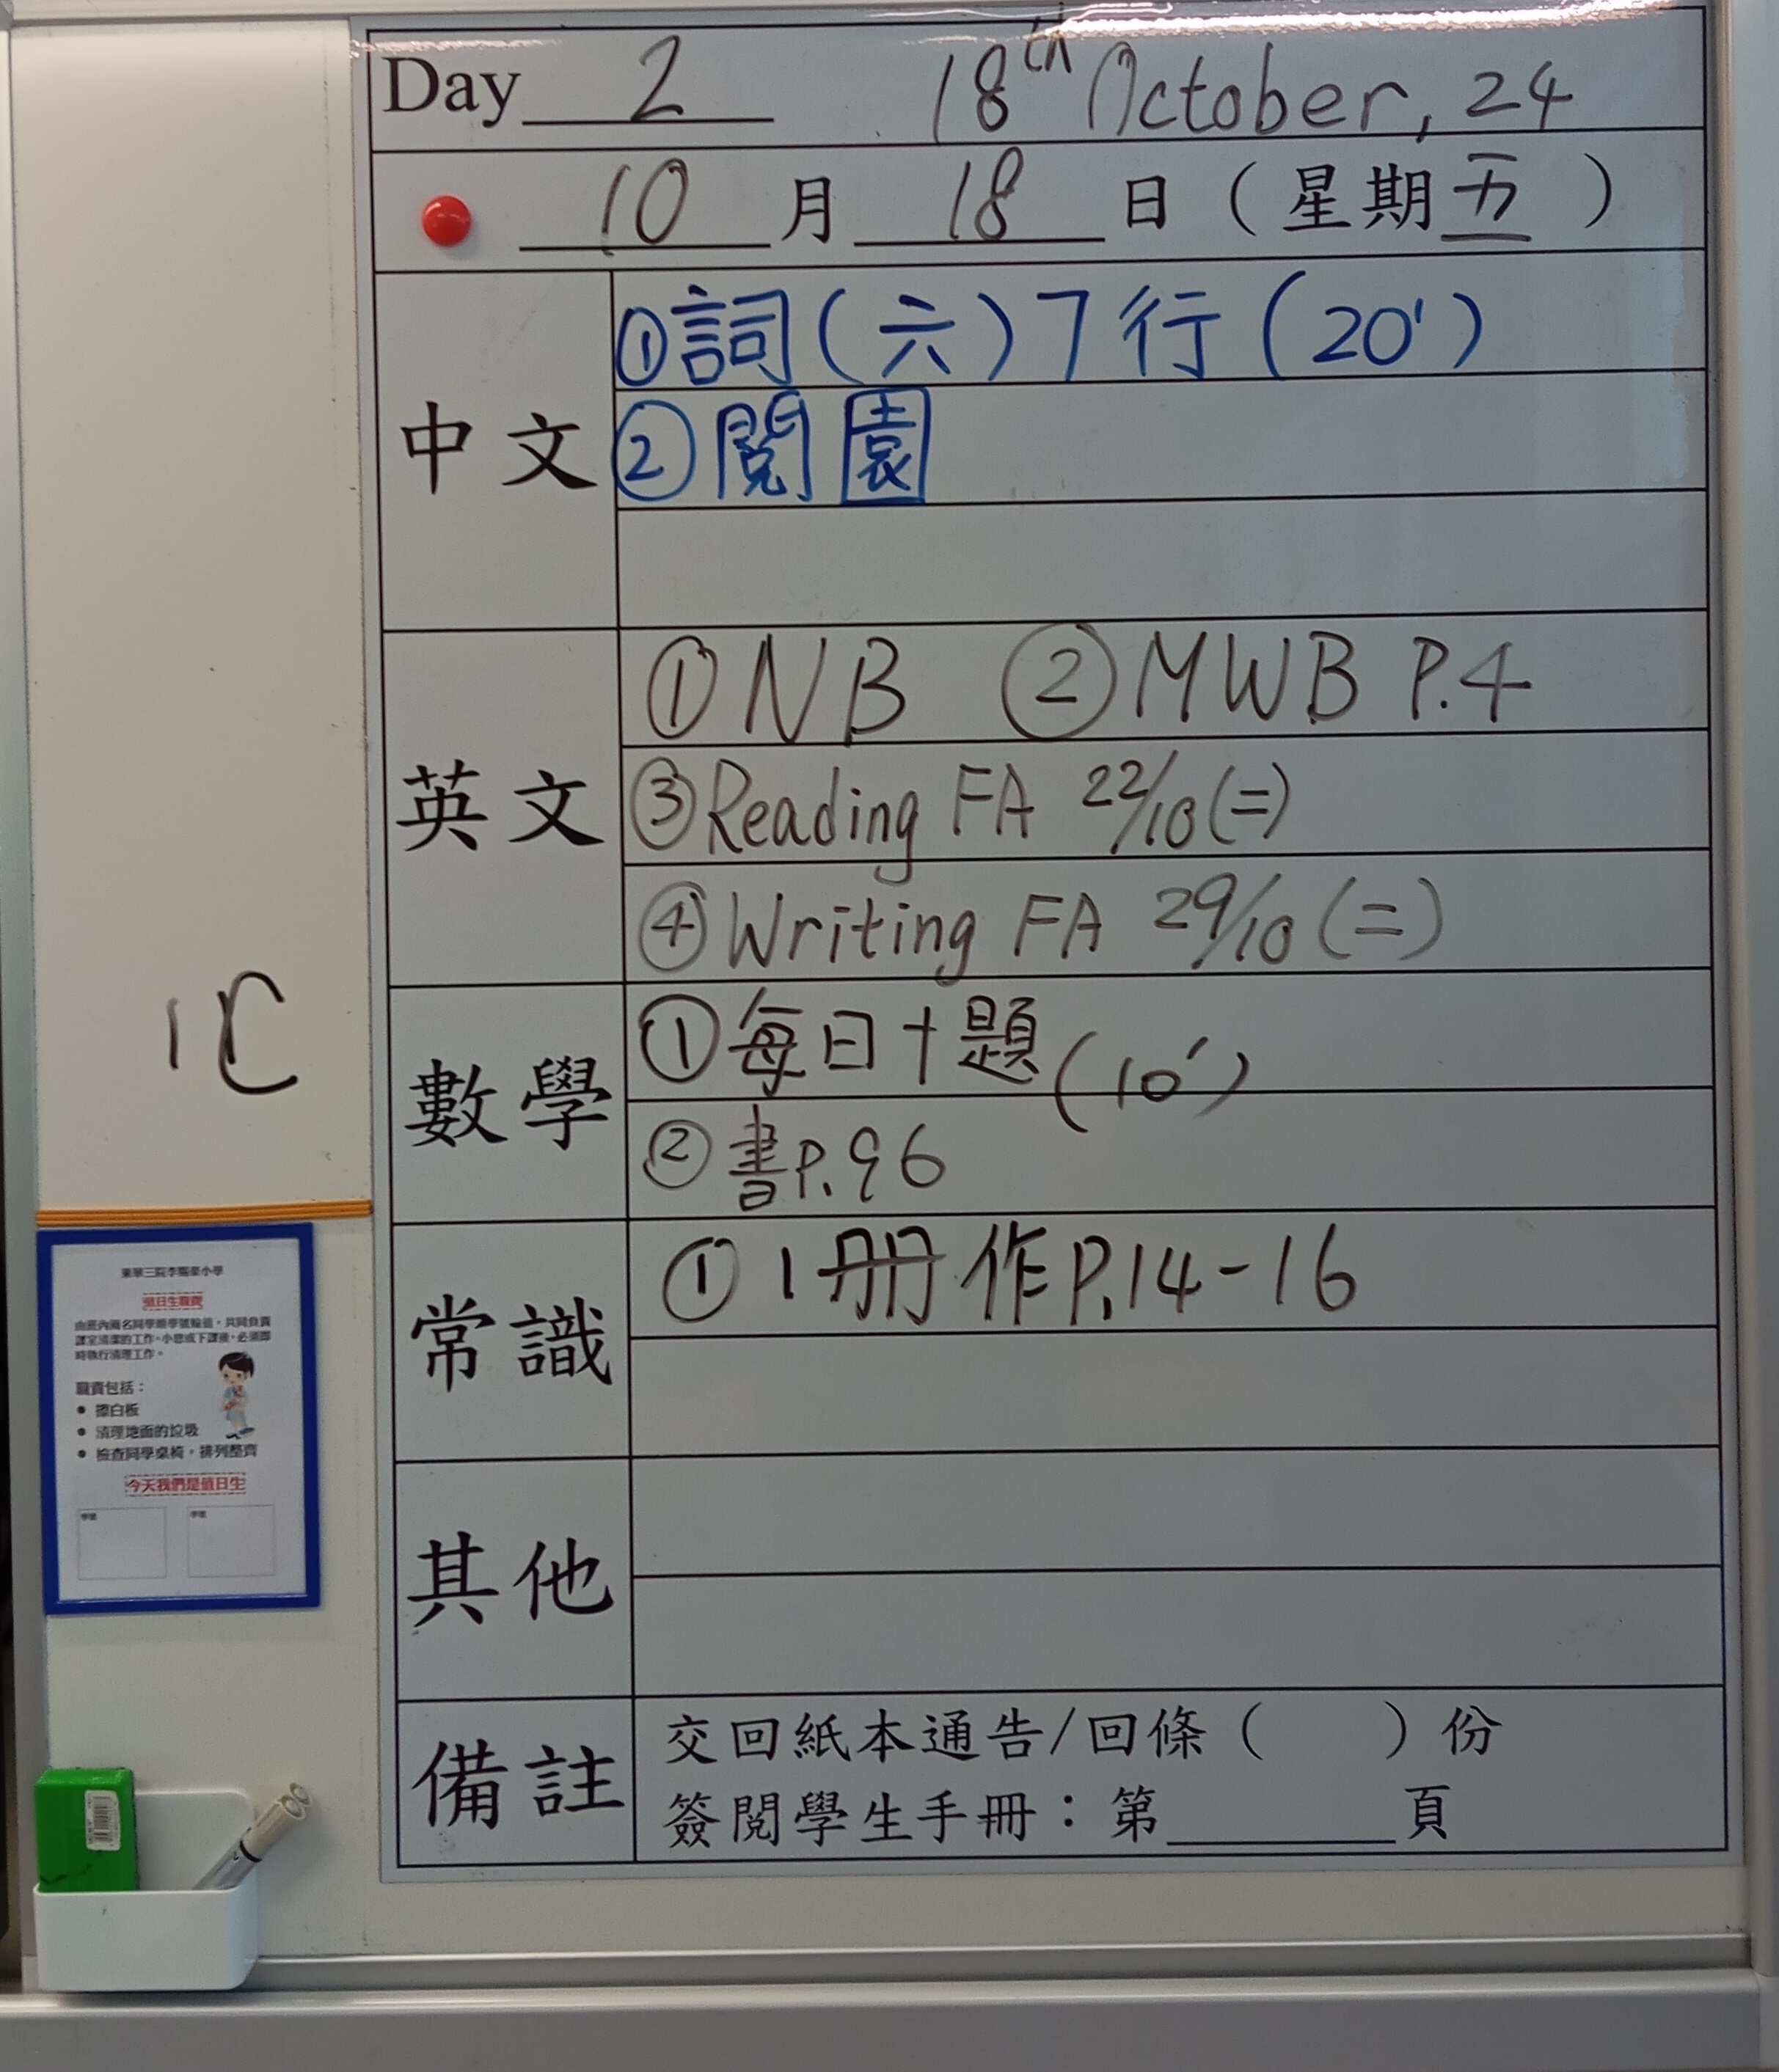 Day 2 18th October, 24
10 月 18 日 ( 星期 五 )
中文
①詞(六)7行(20')
②閱園
英文
①NB ②MWB P.4
③Reading FA 22/10(二)
④Writing FA 29/10(二)
數學
①每日十題(10')
②書P.96
常識
①1冊作P.14-16
其他
備註
交回紙本通告/回條 ( ) 份
簽閱學生手冊:第____頁
1C
東華三院李賜豪小學
值日生職責
由班內兩名同學順學號輪值,共同負責
課室清潔的工作。小息或下課後,必須即
時執行清理工作。
職責包括:
• 擦白板
• 清理地面的垃圾
• 檢查同學桌椅,排列整齊
今天我們是值日生
學號
學號